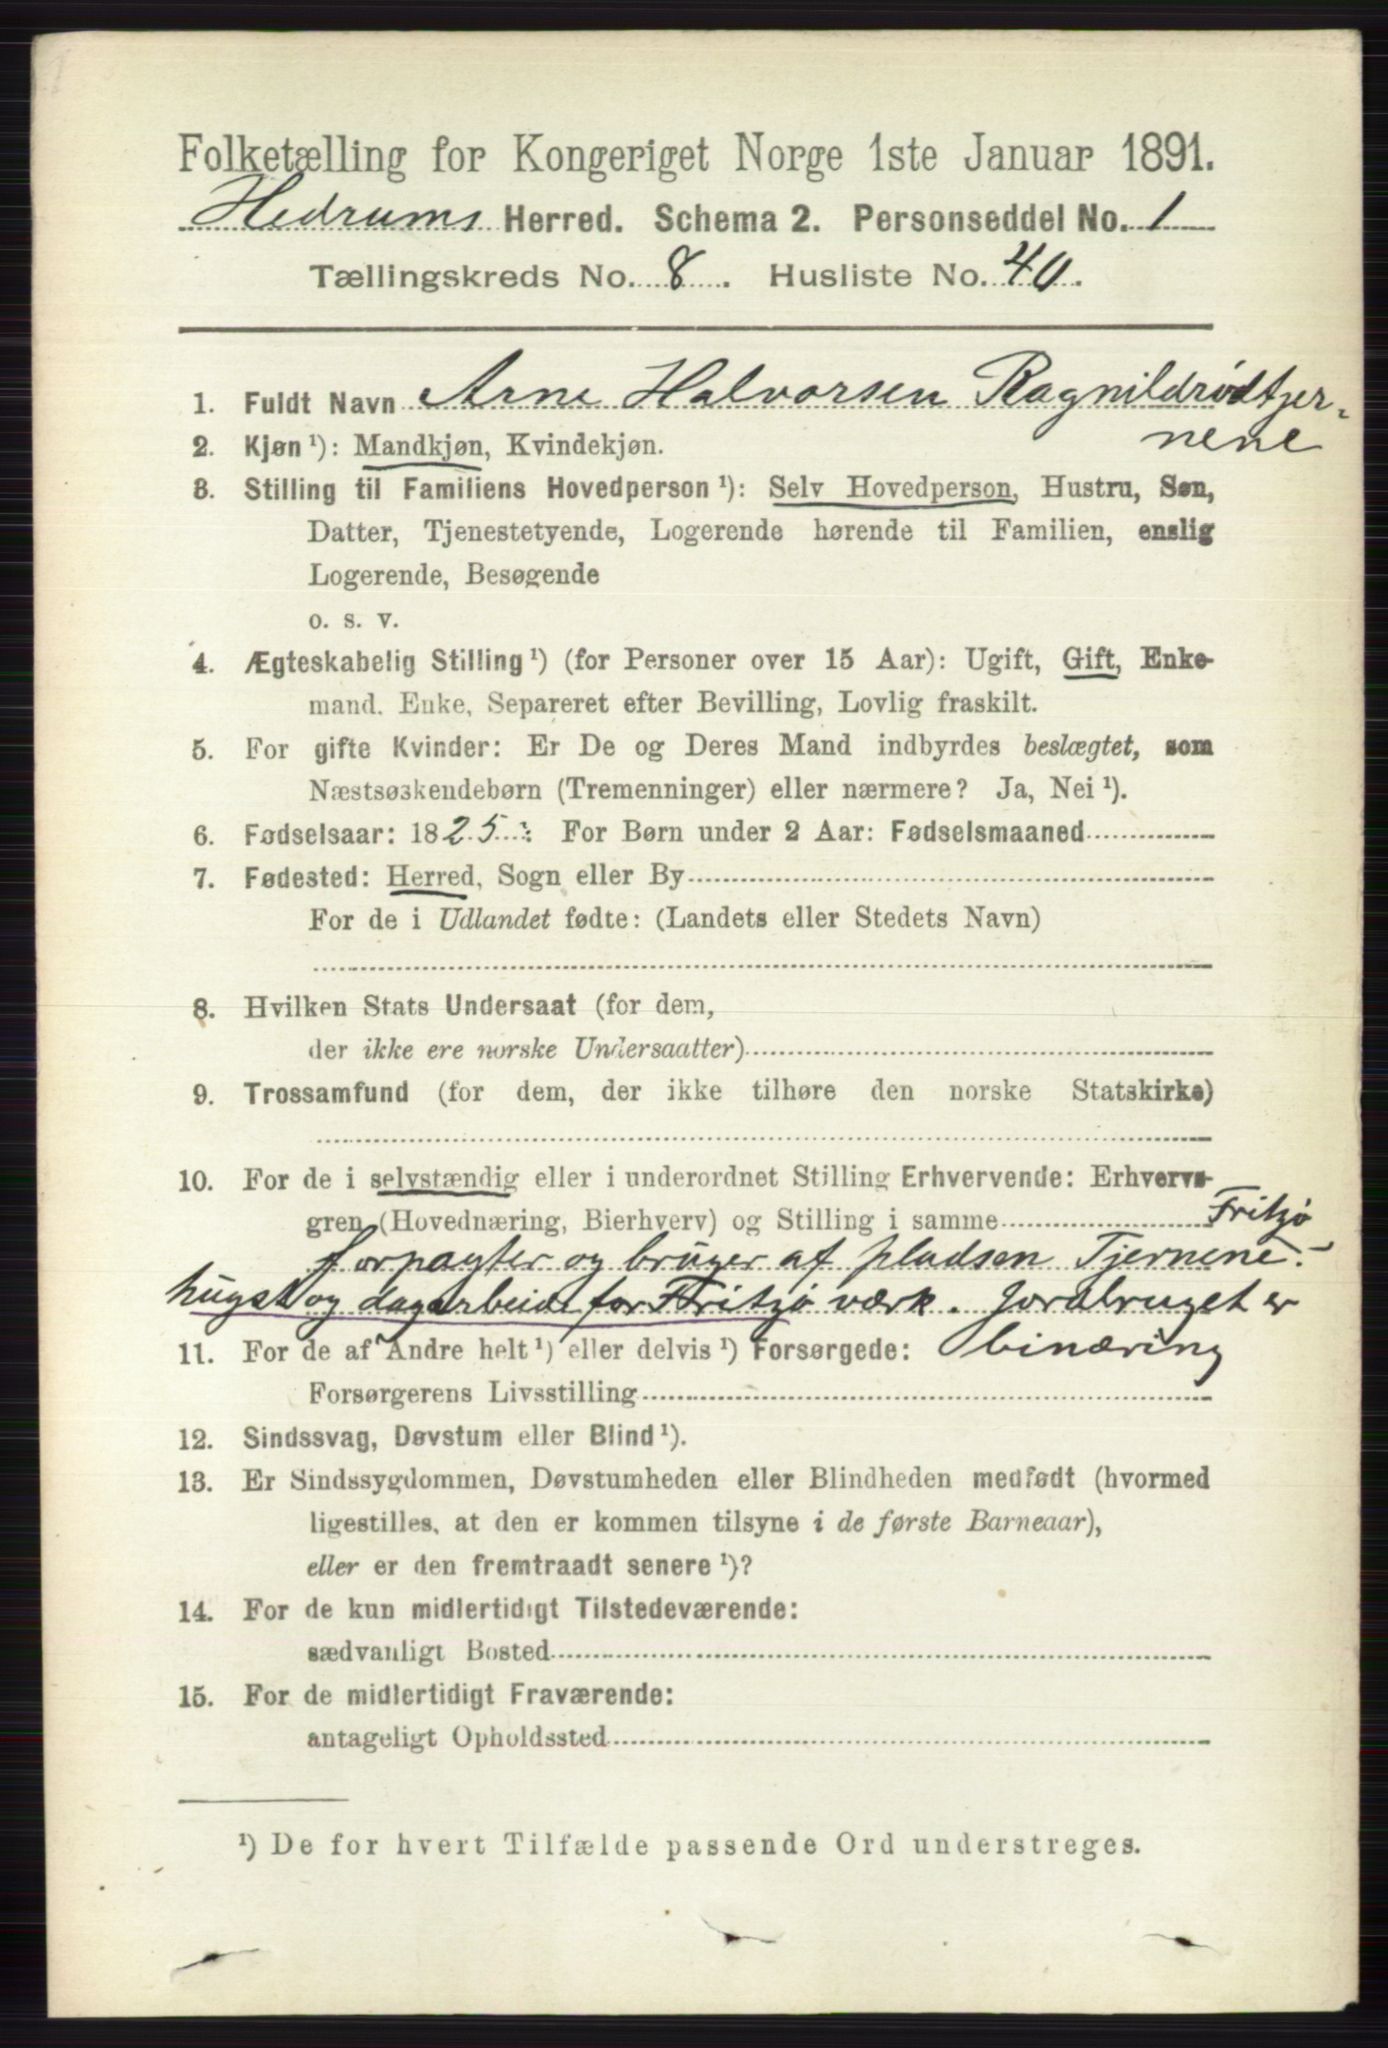 Folketælling for Kongeriget Norge 1ste Januar 1891.
Hedrums Herred. Schema 2. Personseddel No. 1
Tællingskreds No. 8. Husliste No. 40.
1. Fuldt Navn Arne Halvorsen Ragnildrødtjer-
nene
2. Kjøn ¹): Mandkjøn, Kvindekjøn.
3. Stilling til Familiens Hovedperson ¹): Selv Hovedperson, Hustru, Søn,
Datter, Tjenestetyende, Logerende hørende til Familien, enslig
Logerende, Besøgende
o. s. v.
4. Ægteskabelig Stilling ¹) (for Personer over 15 Aar): Ugift, Gift, Enke-
mand, Enke, Separeret efter Bevilling, Lovlig fraskilt.
5. For gifte Kvinder: Er De og Deres Mand indbyrdes beslægtet, som
Næstsøskendebørn (Tremenninger) eller nærmere? Ja, Nei ¹).
6. Fødselsaar: 1825. For Børn under 2 Aar: Fødselsmaaned
7. Fødested: Herred, Sogn eller By
For de i Udlandet fødte: (Landets eller Stedets Navn)
8. Hvilken Stats Undersaat (for dem,
der ikke ere norske Undersaatter)
9. Trossamfund (for dem, der ikke tilhøre den norske Statskirke)
10. For de i selvstændig eller i underordnet Stilling Erhvervende: Erhvervs-
gren (Hovednæring, Bierhverv) og Stilling i samme Fritzø
forpagter og bruger af pladsen Tjernene.-
hugst og dagarbeide for Fritzø værk. Jordbruget er
11. For de af Andre helt ¹) eller delvis ¹) Forsørgede: binæring
Forsørgerens Livsstilling
12. Sindssvag, Døvstum eller Blind ¹).
13. Er Sindssygdommen, Døvstumheden eller Blindheden medfødt (hvormed
ligestilles, at den er kommen tilsyne i de første Barneaar),
eller er den fremtraadt senere ¹)?
14. For de kun midlertidigt Tilstedeværende:
sædvanligt Bosted
15. For de midlertidigt Fraværende:
antageligt Opholdssted
¹) De for hvert Tilfælde passende Ord understreges.